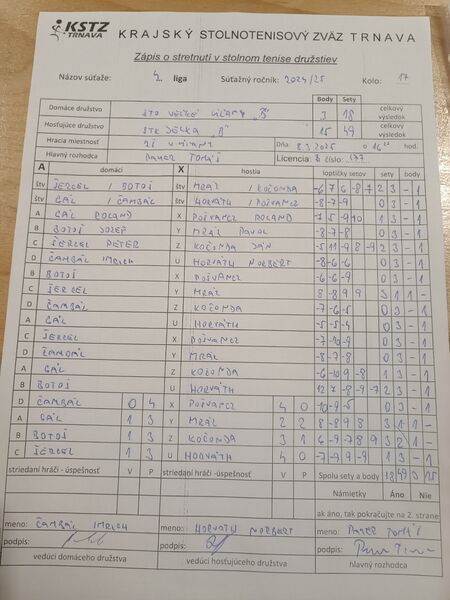 KSTZ TRNAVA KRAJSKÝ STOLNOTENISOVÝ ZVÄZ TRNAVA
Zápis o stretnutí v stolnom tenise družstiev
Názov súťaže: 4. liga Súťažný ročník: 2024/25 Kolo: 17
Body Sety
Domáce družstvo STO VEĽKÉ "B" 3 18 celkový výsledok
Hosťujúce družstvo STK SELKA "B" 15 49 celkový výsledok
Hracia miestnosť Dňa 8.3.2025 o 16 hod.
Hlavný rozhodca PAVEL TOMÁŠ Licencia: číslo:
A domáci X hostia loptičky setov sety body
štv ŠERCEL / BOTOŠ štv MRÁZ / KOČONDA -6 7 6 -8 -7 2 3 - 1
štv GÁL / ČAMBÁL štv HORVÁTH / POŠVANCZ -8 -7 -9 0 3 - 1
A GÁL ROLAND X POŠVANCZ ROLAND 0 3 - 1
B BOTOŠ JOZEF Y MRÁZ PAVOL -8 -7 -8 0 3 - 1
C ŠERCEL PETER Z KOČONDA JÁN -5 11 -9 8 -9 2 3 - 1
D ČAMBÁL IMRICH U HORVÁTH NORBERT -8 -6 -6 0 3 - 1
B BOTOŠ X POŠVANCZ -6 -6 -9 0 3 - 1
C ŠERCEL Y MRÁZ 8 -8 9 9 3 1 1 -
D ČAMBÁL Z KOČONDA -7 -6 -5 0 3 - 1
A GÁL U HORVÁTH -5 -5 -4 0 3 - 1
C ŠERCEL X POŠVANCZ -7 -10 -9 0 3 - 1
D ČAMBÁL Y MRÁZ -8 -7 -8 0 3 - 1
A GÁL Z KOČONDA -6 -10 9 -8 1 3 - 1
B BOTOŠ U HORVÁTH 12 7 -8 -9 -7 2 3 - 1
D ČAMBÁL 0 4 X POŠVANCZ 4 0 -10 -9 -5 0 3 - 1
A GÁL 1 3 Y MRÁZ 2 2 8 -8 9 8 3 1 1 -
B BOTOŠ 1 3 Z KOČONDA 3 1 6 -9 -7 8 9 3 2 1 -
C ŠERCEL 1 3 U HORVÁTH 4 0 -7 -9 9 -9 1 3 - 1
striedaní hráči - úspešnosť V P striedaní hráči - úspešnosť V P Spolu sety a body 18 49 3 15
Námietky Áno Nie
ak áno, tak pokračujte na 2. strane
meno: ČAMBÁL IMRICH meno: HORVÁTH NORBERT meno: PAVEL TOMÁŠ
podpis: podpis: podpis:
vedúci domáceho družstva vedúci hosťujúceho družstva hlavný rozhodca